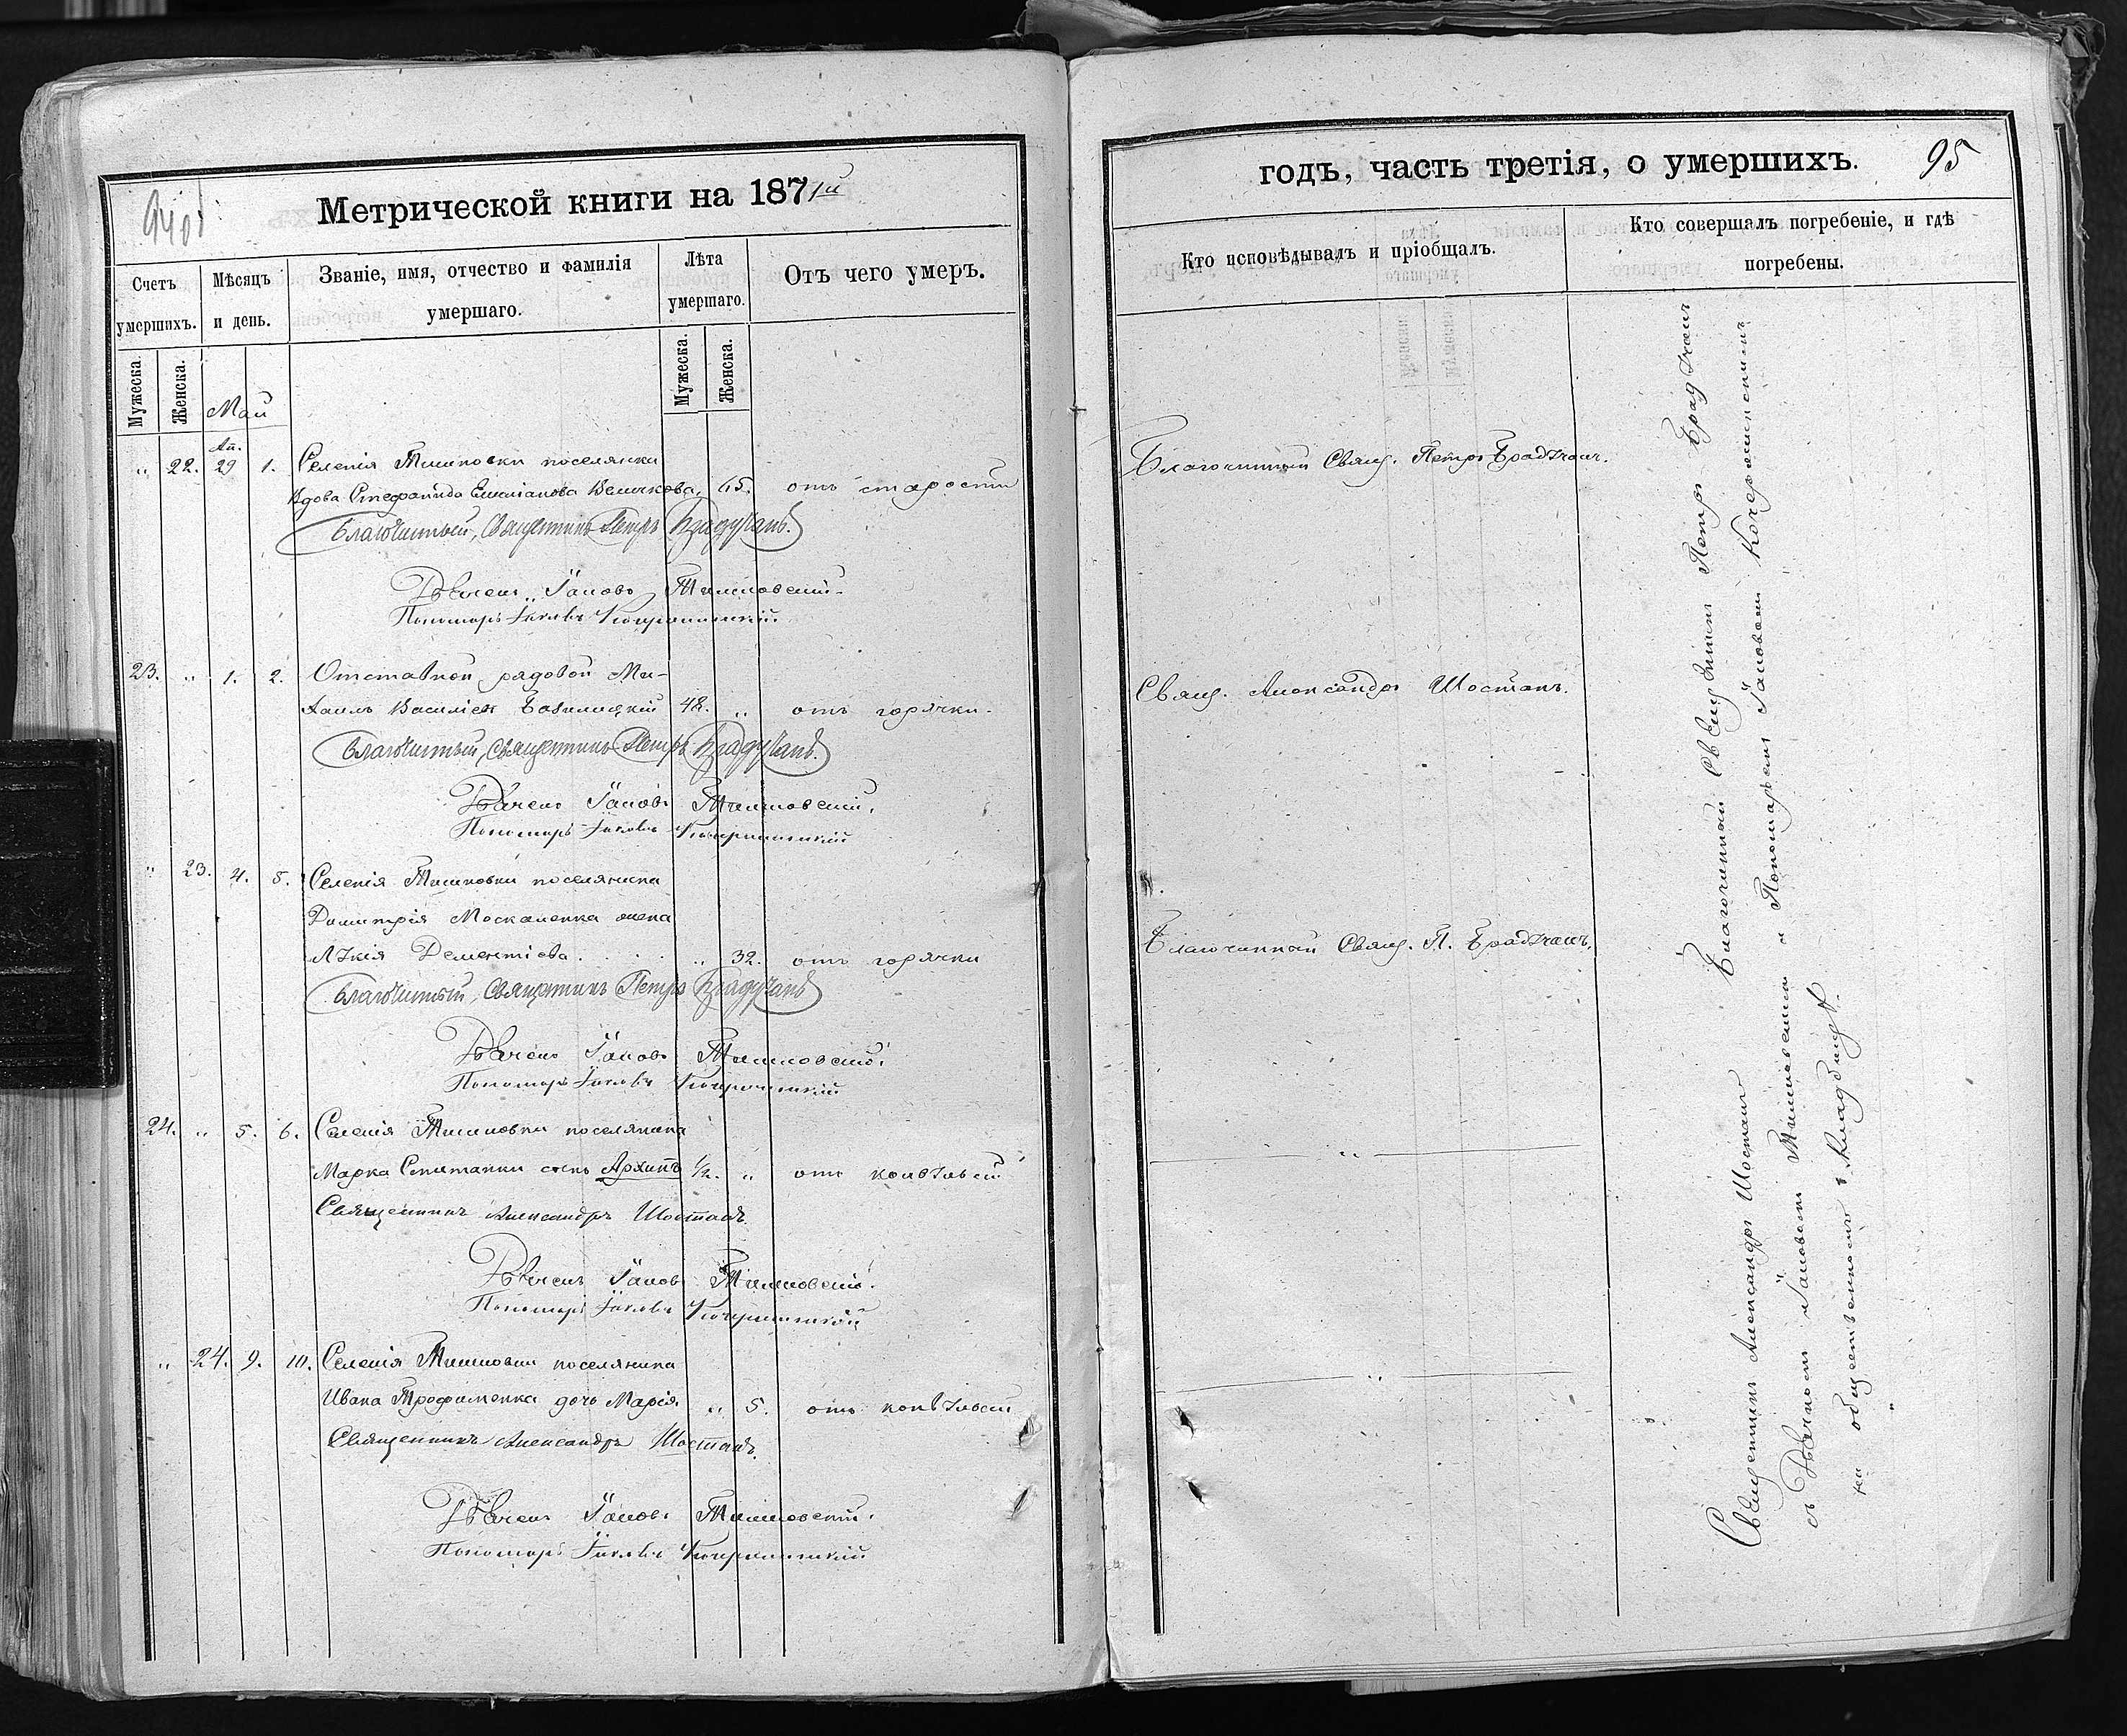 94 об
Метрической книги на 1871й
Счетъ умершихъ.
Мѣсяцъ и день.
Званіе, имя, отчество и фамилія умершаго.
Лѣта умершаго.
Отъ чего умеръ.
Мужеска.
Женска.
Май
Мужеска.
Женска.
„ 22. Ап. 29 1. Селенія Тишковки поселянка
Вдова Стефанида Емиліанова „ 65. отъ старости
Благочинный, Священникъ Петръ Брадучанъ.
Дьячекъ Іаковъ Тишковскій.
Пономарь Іаковъ
23. „ 1. 2. Отставной рядовой Ми-
хаилъ Василіевъ 48. „ отъ горячки.
Благочинный, Священникъ Петръ Брадучанъ.
Дьячекъ Іаковъ Тишковскій.
Пономарь Іаковъ
„ 23. 4. 5. Селенія Тишковки поселянина
Димитрія Москаленка жена
Лукія Дементіева . . . . „ 32. отъ горячки
Благочинный, Священникъ Петръ Брадучанъ
Дьячекъ Іаковъ Тишковскій.
Пономарь Іаковъ
24. „ 5. 6. Селенія Тишковки поселянина
Марка сынъ Архипъ ½. „ отъ конвульсій
Священникъ Александръ Шостакъ.
Дьячекъ Іаковъ Тишковскій.
Пономарь Іаковъ
„ 24. 9. 10. Селенія Тишковки поселянина
Ивана Трофименка дочь Марія „ 5. отъ конвульсій
Священникъ Александръ Шостакъ.
Дьячекъ Іаковъ Тишковскій.
Пономарь Іаковъ
годъ, часть третія, о умершихъ.
95
Кто исповѣдывалъ и пріобщалъ.
Кто совершалъ погребеніе, и гдѣ погребены.
Благочинный Свящ. Петръ Брадучанъ.
Свящ. Александръ Шостакъ.
Благочинный Свящ. П. Брадучанъ.
„
„
Священникъ Александръ Шостакъ Благочинный Священникъ Петръ Брадучанъ
съ Дьячкомъ Іаковомъ Тишковскимъ и Пономаремъ Іаковомъ
на общественномъ кладбищѣ.